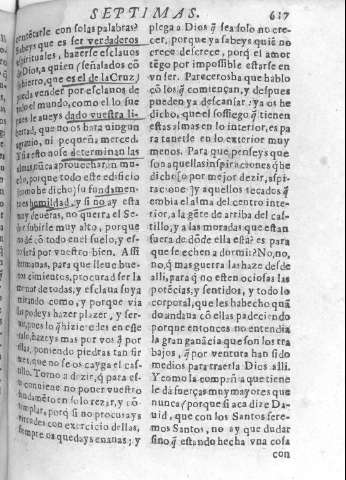 SEPTIMAS. 617
con solas palabras?
Sabeys que es ser verdaderos
espirituales, hazerse esclauos
de Dios, a quien (señalados cõ
hierro, que es el de la Cruz)
pueda vender por esclauos de
todo el mundo, como el lo fue
dado vuestra li-
bertad, que no os hara ningun
agrauio, ni pequeña merced.
Y si a esto no se determinan las
almas, nunca aprouecharàn mu-
cho, porque todo este edificio
como he dicho, su fundamen-
es humildad, y si no ay esta
muy deueras, no querra el Se-
ñor subirle muy alto, porque
no dè cõ todo en el suelo, y es-
to serà por vuestro bien. Assi
hermanas, para que lleue bue-
nos cimientos, procurad ser la
menor de todas, y esclaua suya
mirando como, y porque via
las podeys hazer plazer, y ser-
uir, pues lo q̃ hizieredes en este
caso, hazeys mas por vos q̃ por
ellas, poniendo piedras tan fir-
mes, que no se os cayga el cas-
tillo. Torno a dezir, q̃ para es-
to conuiene no poner vuestro
fundamẽto en solo rezar, y cõ-
templar, porq̃ si no procurays
virtudes con exercicio dellas,
siempre os quedays enanas; y
plega a Dios q̃ sea solo no cre-
cer, porque ya sabeys quiẽ no
crece descrece, porq̃ el amor
tẽgo por impossible estarse en
vn ser. Pareceros ha que hablo
cõ los q̃ comiençan, y despues
pueden ya descansar: ya os he
dicho, que el sossiego q̃ tienen
estas almas en lo interior, es pa
ra tenerle en lo exterior muy
menos. Para que, penseys que
son aquellas inspiraciones q̃ he
dicho, o por mejor dezir, aspi-
raciones? y aquellos recados q̃
embia el alma del centro inte-
rior, a la gẽte de arriba del cas-
tillo, y a las moradas que estan
fuera de dõde ella està? es para
que se echen a dormir? No, no,
no, q̃ mas guerra las haze desde
alli, para q̃ no esten ociosas las
potẽcias, y sentidos, y todo lo
corporal, que les ha hecho quã
do andaua cõ ellas padeciendo
porque entonces no entendia
la gran ganãcia que son los tra
bajos, q̃ por ventura han sido
medios para traerla Dios alli.
Y como la compañia que tiene
le dà fuerças muy mayores que
nunca (porque si aca dize Da-
uid, que con los Santos sere-
mos Santos, no ay que dudar
sino q̃ estando hecha vna cosa
con